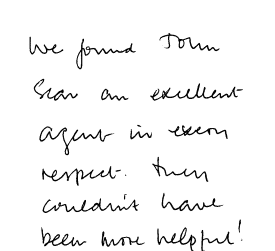 We found John
Sear an excellent
agent in every
respect. They
couldn't have
been more helpful!